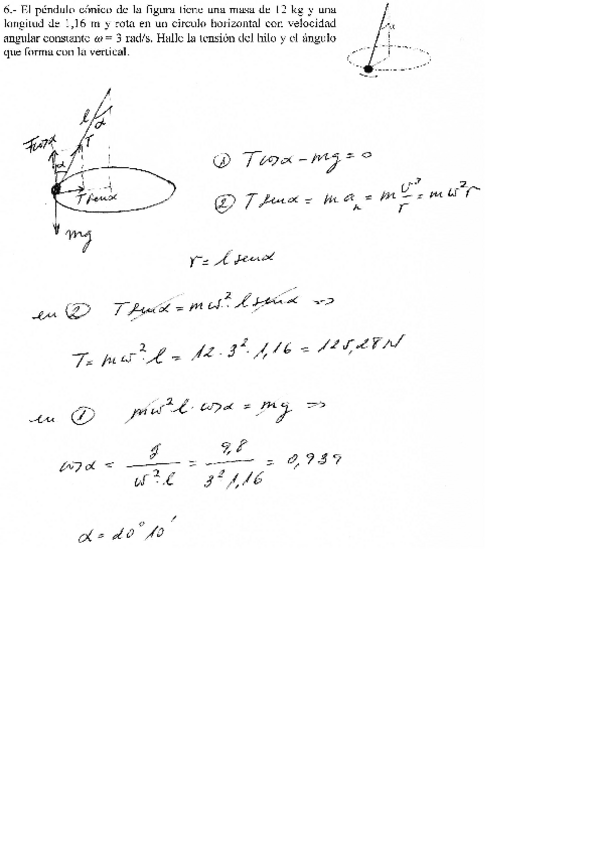 6.- El péndulo cónico de la figura tiene una masa de 12 kg y una
longitud de 1,16 m y rota en un círculo horizontal con velocidad
angular constante ω = 3 rad/s. Halle la tensión del hilo y el ángulo
que forma con la vertical.
α
l
α
Tcosα
T
α
T senα
mg
① T cosα - mg = 0
② T senα = m aₙ = m v²/r = m ω² r
r = l senα
en ② T senα = m ω² · l senα =>
T = m ω² · l = 12 · 3² · 1,16 = 125,28 N
en ① m ω² l · cosα = mg =>
cosα = g / (ω² · l) = 9,8 / (3² 1,16) = 0,939
α = 20° 10'